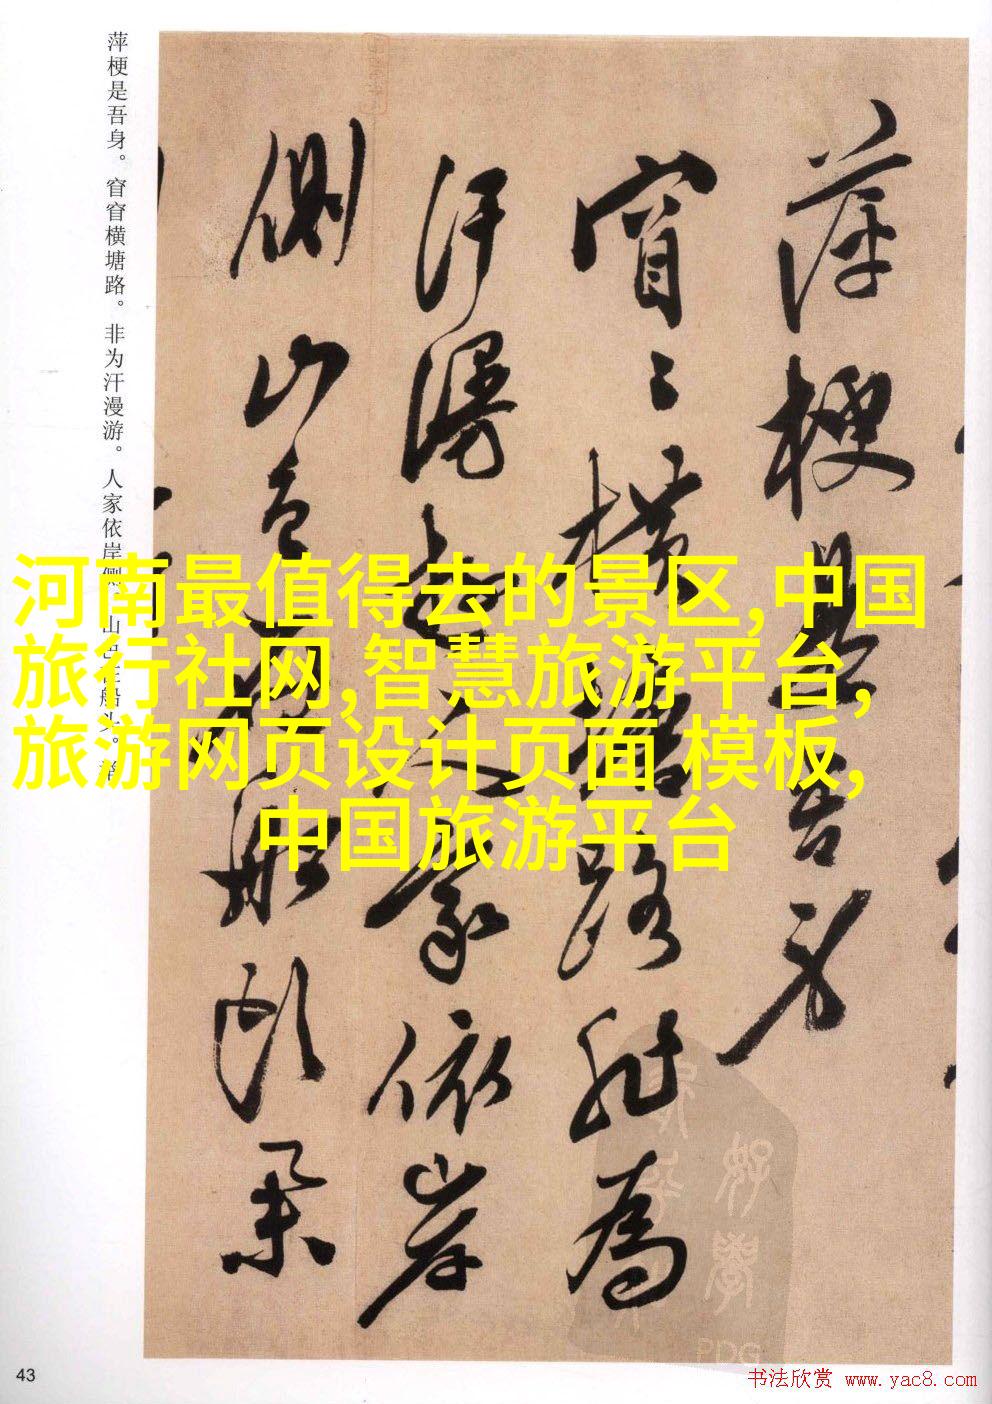 萍梗是吾身。窅窅横塘路。非为汗漫游。人家依岸侧。山色在船头。
萍梗是吾身
窅〻横塘路非為
汗漫遊人家依岸
側山色在船頭
河南最值得去的景区,中国
旅行社网,智慧旅游平台,
旅游网页设计页面 模板,
中国旅游平台
PDG
43
书法欣赏 www.yac8.com